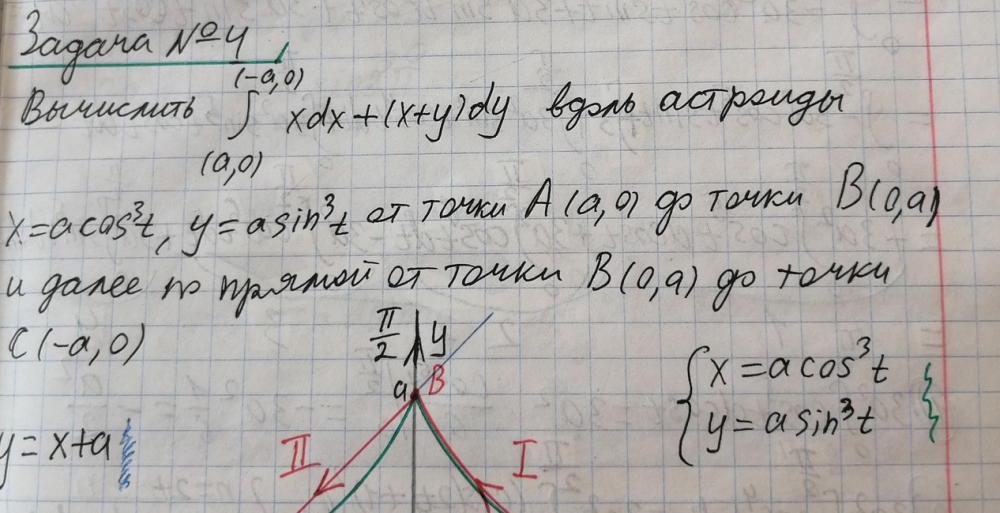 Задача №4
(-a,0)
Вычислить ∫ xdx+(x+y)dy вдоль астроиды
(a,0)
x=acos³t, y=asin³t от точки A(a,0) до точки B(0,a)
и далее по прямой от точки B(0,a) до точки
C(-a,0)
π/2 y
a B
{ x=acos³t
y=asin³t
y=x+a
II I